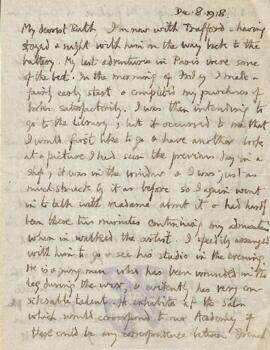 Dec. 8. 1918.
My dearest Ruth I'm now with Trafford - having
stayed a night with him on the way back to the
battery. My last adventures in Paris were some
of the best. In the morning of Friday I made a
fairly early start & completed my purchases of
books satisfactorily. I was then intending to
go to the Library; but it occurred to me that
I would first like to go & have another look
at a picture I had seen the previous day in a
shop; it was in the window & I was just as
much struck by it as before. So I again went
in to talk with madame about it & had hardly
been there two minutes continuing my admiration
when in walked the artist. I speedily arranged
with him to go & see his studio in the evening.
He is a young man who has been wounded in the
leg during the war, & evidently has very con-
siderable talent. He exhibits at the Salon
which would correspond to our Academy if
there could be any correspondence between French